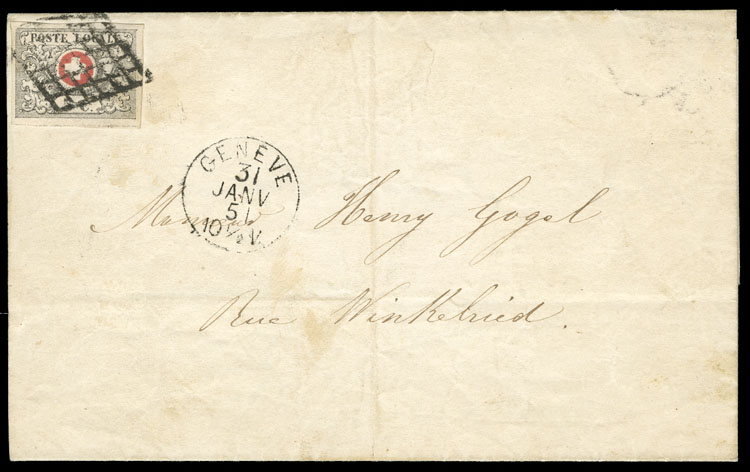 POSTE LOCALE
GENÈVE
31
JANV
51
10
Monsieur Henry Gogel
Rue Winkelried.